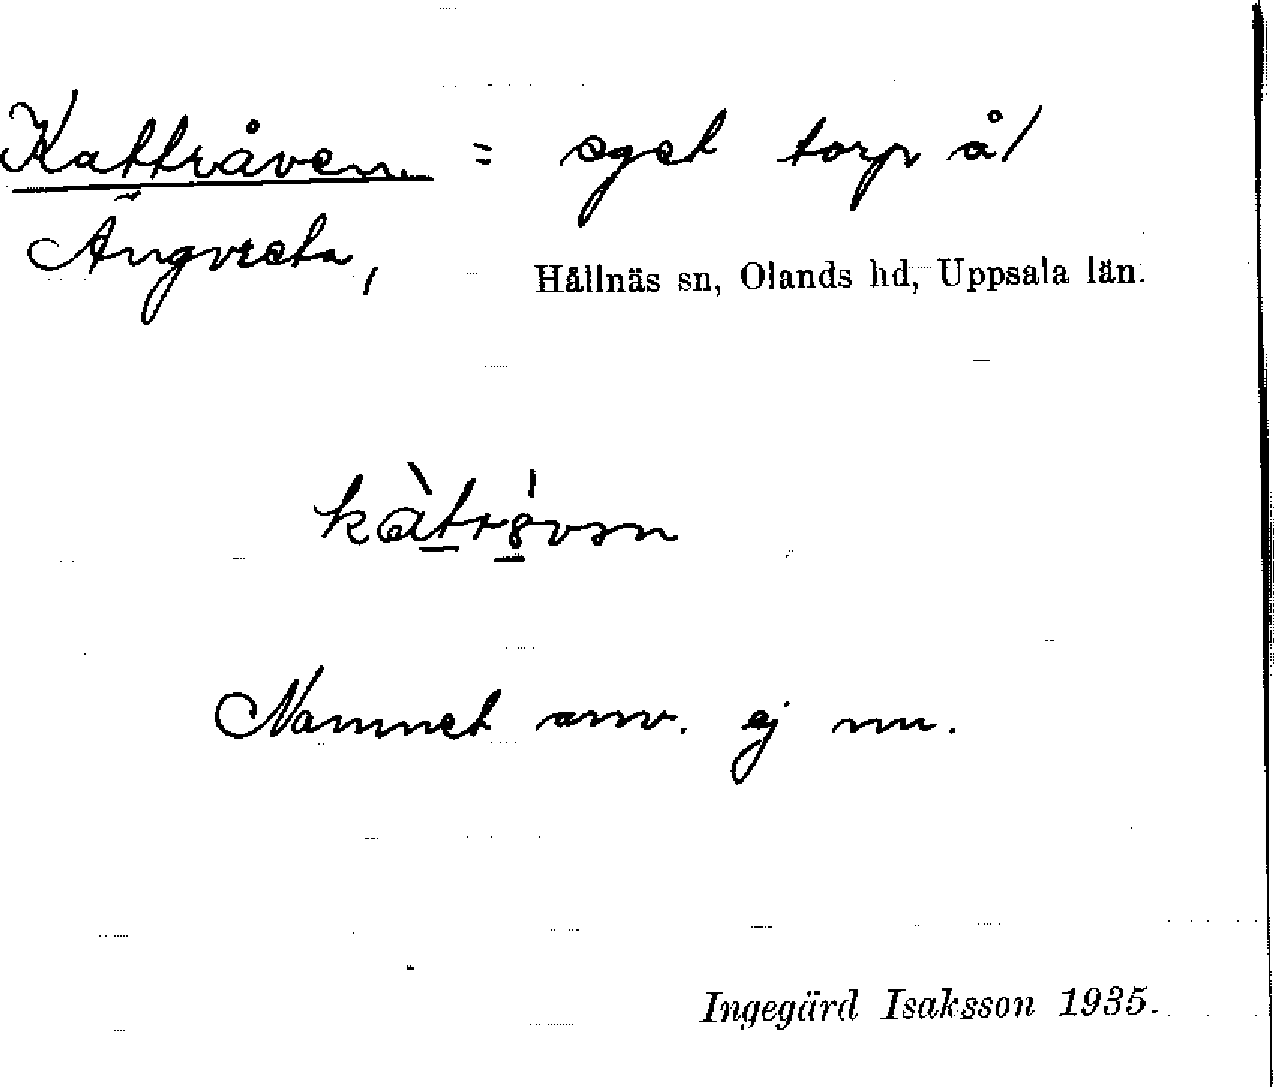 Kattråven. = eget torp å/
Ängvreta,
Hållnäs sn, Olands hd, Uppsala län.
kàtrɵ́vən
Namnet anv. ej nu.
Ingegärd Isaksson 1935.